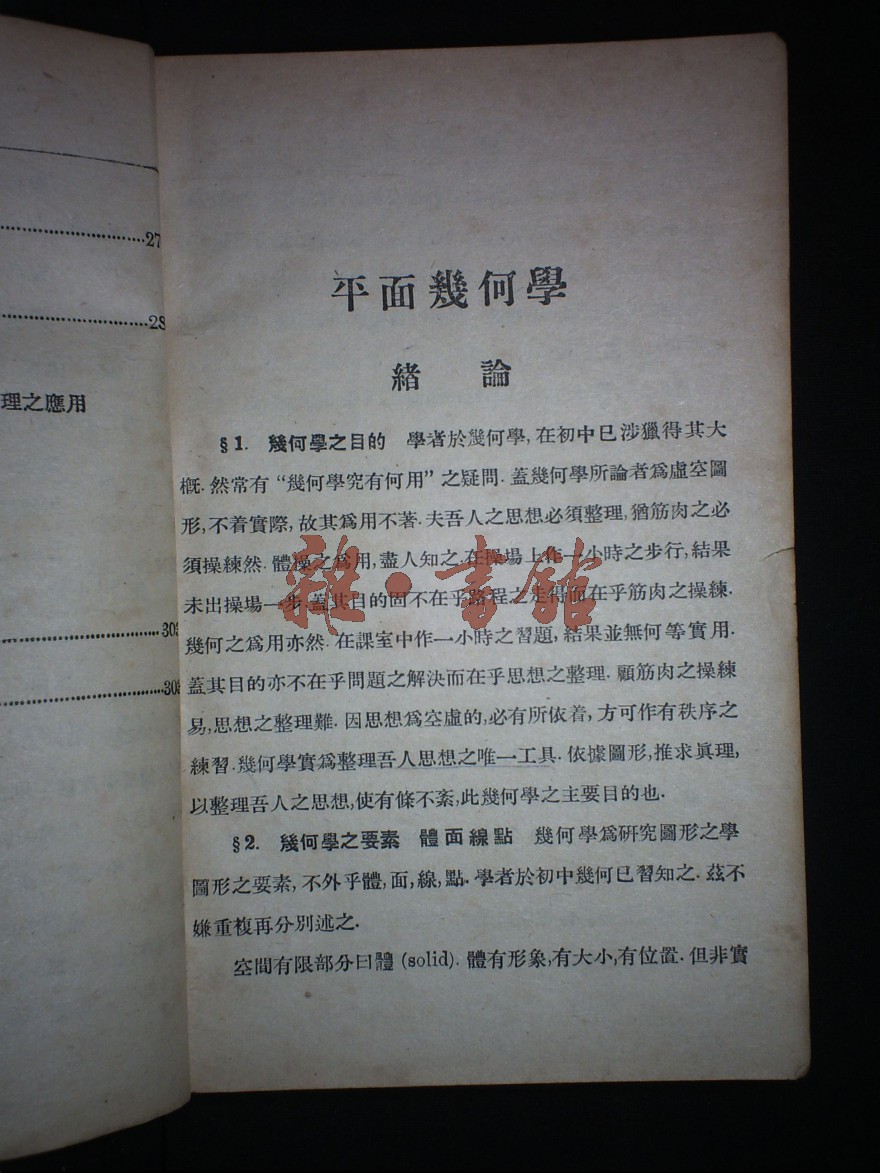 27
28
理之應用
303
平面幾何學
緒論
§1. 幾何學之目的 學者於幾何學,在初中已涉獵得其大
概.然常有“幾何學究有何用”之疑問.蓋幾何學所論者爲虛空圖
形,不着實際,故其爲用不著.夫吾人之思想必須整理,猶筋肉之必
須操練然.體操之爲用,盡人知之.在操場上作一小時之步行,結果
未出操場一步.蓋其目的固不在乎路程之走得而在乎筋肉之操練.
幾何之爲用亦然.在課室中作一小時之習題,結果並無何等實用.
蓋其目的亦不在乎問題之解決而在乎思想之整理.顧筋肉之操練
易,思想之整理難.因思想爲空虛的,必有所依着,方可作有秩序之
練習.幾何學實爲整理吾人思想之唯一工具.依據圖形,推求眞理,
以整理吾人之思想,使有條不紊,此幾何學之主要目的也.
§2. 幾何學之要素 體面線點 幾何學爲研究圖形之學
圖形之要素,不外乎體,面,線,點.學者於初中幾何已習知之.茲不
嫌重複再分別述之.
空間有限部分曰體(solid).體有形象,有大小,有位置.但非實
雜·書館